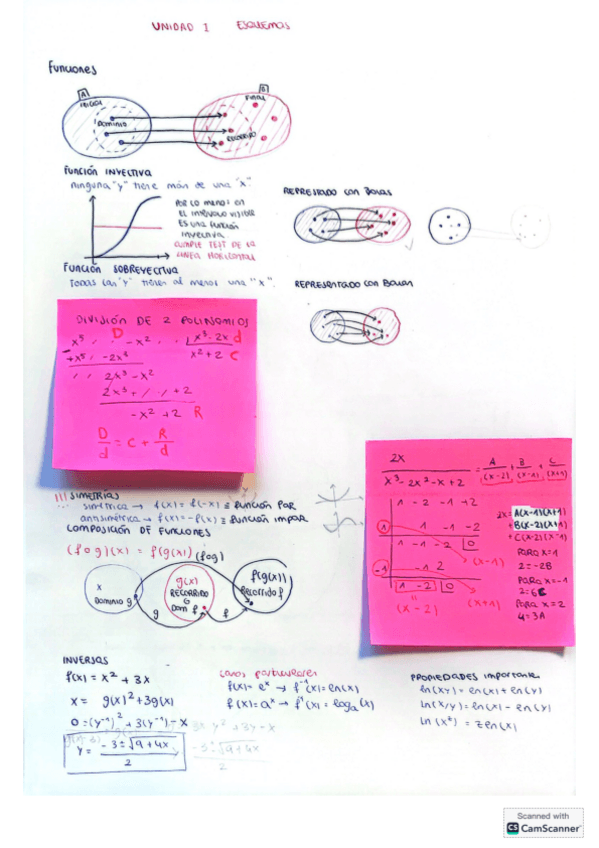 UNIDAD 1 ESQUEMAS
Funciones
A
B
INICIAL
FINAL
DOMINIO
RECORRIDO
FUNCIÓN INYECTIVA
ninguna "y" tiene más de una "x".
POR LO MENOS EN
EL INTERVALO VISIBLE
ES UNA FUNCIÓN
INYECTIVA.
CUMPLE TEST DE LA
LINEA HORIZONTAL
REPRESTADO CON BOLAS
FUNCIÓN SOBREYECTIVA
TODAS LAS "Y" tienen al menos una "x".
REPRESENTADO CON BOLAS
DIVISIÓN DE 2 POLINOMIOS
D
x⁵ , , -x² , , x³-2x d
+x⁵, -2x³ x²+2 C
, , 2x³-x²
2x³+, , +2
-x²+2 R
D/d = C + R/d
2x/(x³-2x²-x+2) = A/(x-2) + B/(x-1) + C/(x+1)
1 -2 -1 +2
1 1 -1 -2
1 -1 -2 0
(x-1)
-1 -1 2
1 -2 0
(x-2) (x+1)
2x= A(x-1)(x+1)
+B(x-2)(x+1)
+C(x-2)(x-1)
PARA x=1
2=-2B
PARA x=-1
PARA x=2
4=3A
!!! SIMETRÍAS
simétrica → f(x)= f(-x) ≡ función PAR
antisimétrica → f(x)=-f(x) ≡ función impar
COMPOSICIÓN DE FUNCIONES
(fog)(x) = f(g(x)) (fog)
x
DOMINIO g
g(x)
RECORRIDO
G
DOM f
f(g(x))
Recorrido f
g
f
INVERSAS
f(x)= x² + 3x
x= g(x)²+3g(x)
0=(y⁻¹)²+3(y⁻¹)-x
y= (-3±√(9+4x))/2
casos particulares
f(x)= eˣ → f⁻¹(x)=ln(x)
f(x)=aˣ → f⁻¹(x)= logₐ(x)
PROPIEDADES importante
ln(xy)= ln(x)+ln(y)
ln(x/y)= ln(x)-ln(y)
ln(x²) = 2ln(x)
Scanned with
CS CamScanner